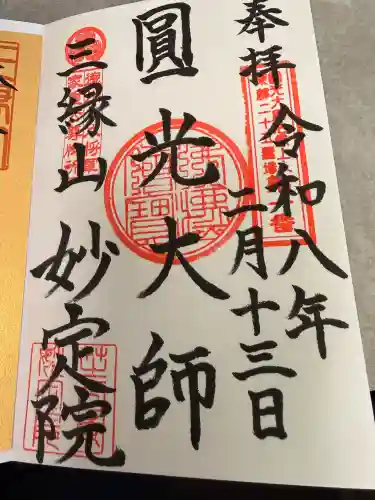 奉拝
令和八年
二月十三日
圓光大師
三縁山
妙定院